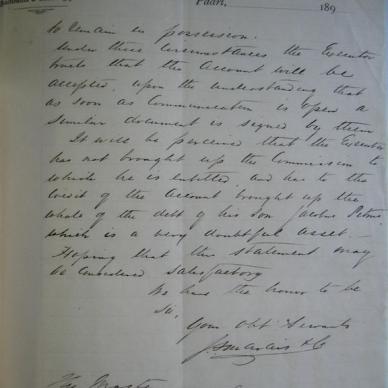 Paarl, 189
to remain in possession.
Under these circumstances the Executor
trusts that the account will be
accepted, upon the understanding that
as soon as Communication is open a
similar document is signed by them
It will be perceived that the Executor
has not brought up the Commission to
which he is entitled, and has to the
credit of the account brought up the
whole of the debt of his son Jacobus Petrus
which is a very doubtful asset.—
Hoping that this statement may
be considered satisfactory
We have the honor to be
Sir,
Your Obt Servants
The Master